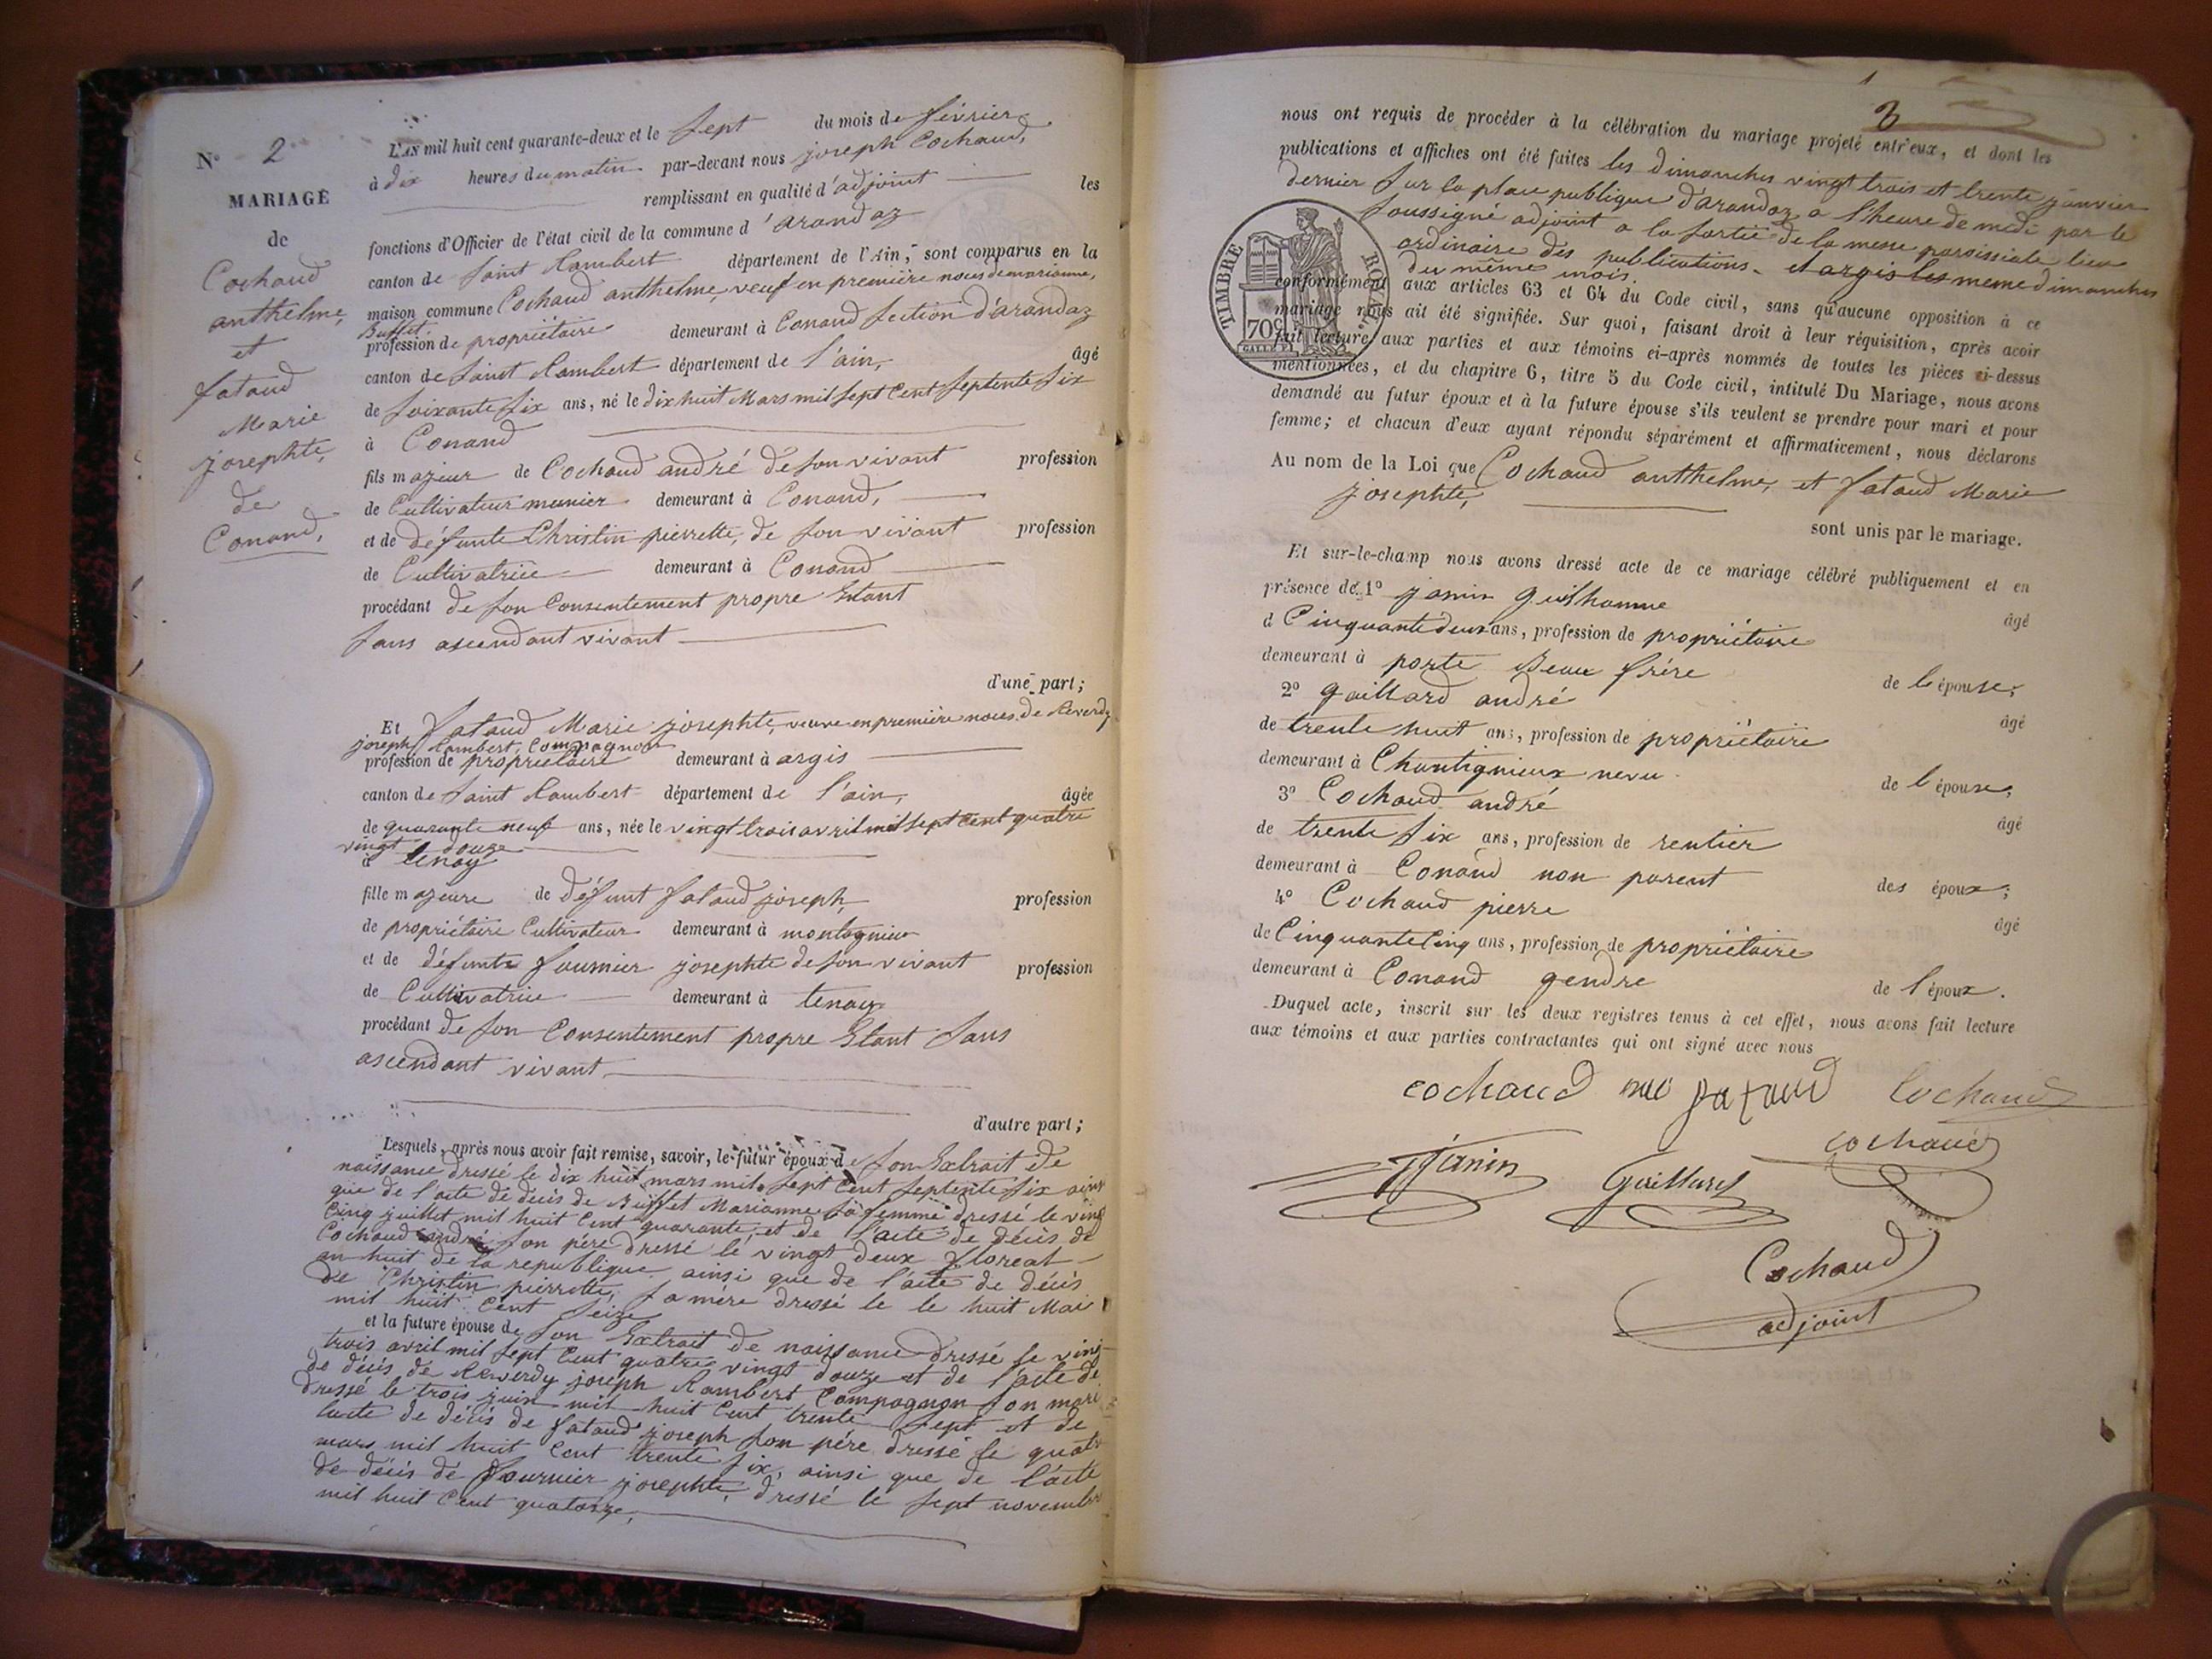 N° 2
MARIAGE
de
Cochaud
anthelme,
et
fataud
Marie
josephte,
de
Conand,
L'AN mil huit cent quarante-deux et le sept du mois de février
à dix heures du matin par-devant nous joseph Cochaud,
remplissant en qualité d'adjoint les
fonctions d'Officier de l'état civil de la commune d'arandaz
canton de saint Rambert département de l'Ain, sont comparus en la
maison commune Cochaud anthelme, veuf en première noces de marianne,
Buffet.
profession de propriétaire demeurant à Conand section d'arandaz
canton de saint Rambert département de l'ain, âgé
de soixante six ans, né le dix huit Mars mil sept Cent septente six
à Conand
fils majeur de Cochaud andré de son vivant profession
de Cultivateur munier demeurant à Conand,
et de défunte Christin pierrette, de son vivant profession
de Cultivatrice demeurant à Conand
procédant de son Consentement propre Etant
sans ascendant vivant
d'une part;
Et fataud Marie josephte, veuve en première noces de Reverdy
joseph Rambert, Compagnon
profession de propriétaire demeurant à argis
canton de saint Rambert département de l'ain, âgée
de quarante neuf ans, née le vingt trois avril mil sept Cent quatre
vingt douze
à tenay
fille majeure de défunt fataud joseph, profession
de propriétaire Cultivateur demeurant à montagnieu
et de défunte fournier josephte de son vivant profession
de Cultivatrice demeurant à tenay
procédant de son Consentement propre Etant sans
ascendant vivant
d'autre part;
Lesquels, après nous avoir fait remise, savoir, le futur époux de son Extrait de
naissance dressé le dix huit mars mil sept Cent septente six ainsi
que de l'acte de décis de Buffet Marianne sa femme dressé le vingt
Cinq juillet mil huit Cent quarante, et de l'acte de décis de
Cochaud andré son père dressé le vingt deux floreal
an huit de la republique ainsi que de l'acte de décis
de Christin pierrette, sa mère dressé le le huit Mai
mil huit Cent seize
et la future épouse de son Extrait de naissance dressé le vingt
trois avril mil sept Cent quatre vingt douze et de l'acte de
de décis de Reverdy joseph Rambert Compagnon son mari
dressé le trois juin mil huit Cent trente sept et de
lacte de décis de fataud joseph son père dressé le quatre
mars mil huit Cent trente six, ainsi que de l'acte
de décis de fournier josephte, dressé le sept novembre
mil huit Cent quatorze,
3
nous ont requis de procéder à la célébration du mariage projeté entr'eux, et dont les
publications et affiches ont été faites les dimanches vingt trois et trente janvier
dernier sur la place publique d'arandaz a l'heure de midi par le
soussigné adjoint a la sortie de la messe paroissiale lieu
ordinaire des publications. et argis les meme dimanches
du même mois.
TIMBRE ROYAL.
70c
conformément aux articles 63 et 64 du Code civil, sans qu'aucune opposition à ce
mariage nous ait été signifiée. Sur quoi, faisant droit à leur réquisition, après avoir
fait lecture aux parties et aux témoins ci-après nommés de toutes les pièces ci-dessus
mentionnées, et du chapitre 6, titre 5 du Code civil, intitulé Du Mariage, nous avons
demandé au futur époux et à la future épouse s'ils veulent se prendre pour mari et pour
femme; et chacun d'eux ayant répondu séparément et affirmativement, nous déclarons
Au nom de la Loi que Cochaud anthelme, et fataud Marie
josephte,
sont unis par le mariage.
Et sur-le-champ nous avons dressé acte de ce mariage célébré publiquement et en
présence de 1° janin Guilhomme
d Cinquante deux ans, profession de propriétaire âgé
demeurant à porte Beau frère de l'épouse;
2° gaillard andré
de trente huit ans, profession de propriétaire âgé
demeurant à Chantignieux neveu de l'épouse;
3° Cochaud andré
de trente six ans, profession de rentier âgé
demeurant à Conand non parent des époux;
4° Cochaud pierre
de Cinquante Cinq ans, profession de propriétaire âgé
demeurant à Conand gendre de l'époux.
Duquel acte, inscrit sur les deux registres tenus à cet effet, nous avons fait lecture
aux témoins et aux parties contractantes qui ont signé avec nous
cochaud fataud Cochaud
Janin Gaillard cochaud
Cochaud
adjoint